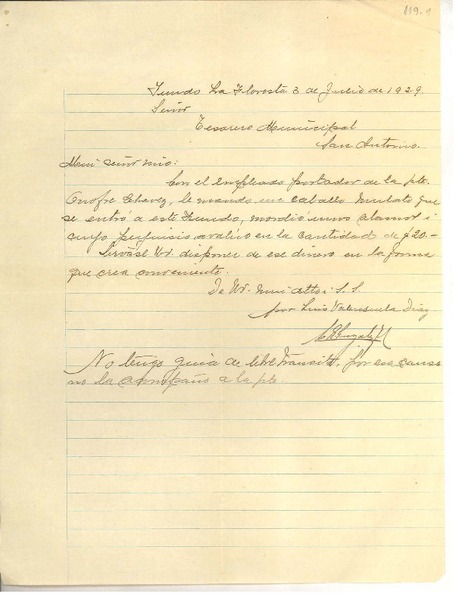 119.
Fundo La Floresta 3 de Julio de 1929.
Señor
Tesorero Municipal
San Antonio.
Mui señor mio:
Con el empleado portador de la pte.
Onofre Chavez, le mando un caballo mulato que
se entró a este Fundo, mordió unos alamos i
cuyo perjuicio avaluo en la cantidad de $20.-
Sirvase Ud. disponer de ese dinero en la forma
que crea conveniente.
De Ud. mui atto i S. S.
por Luis Valenzuela Diaz
No tengo guia de libre transito, por esa causa
no la acompaño a la pte.